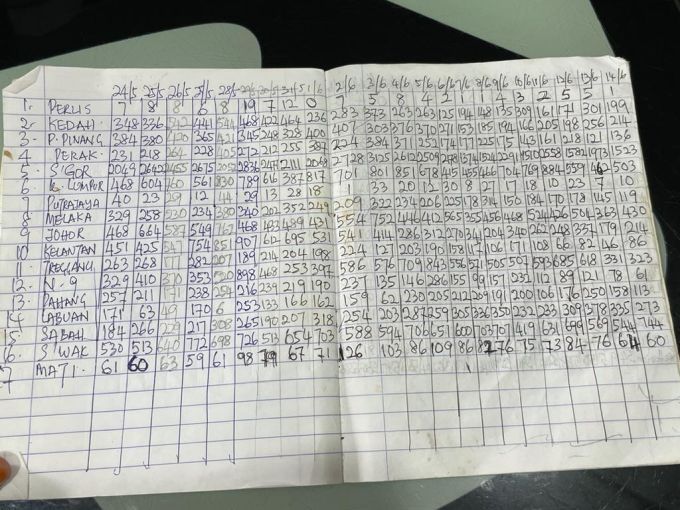 24/5 25/5 26/5 27/5 28/5 29/5 30/5 31/5 1/6 2/6 3/6 4/6 5/6 6/6 7/6 8/6 9/6 10/6 11/6 12/6 13/6 14/6
1. PERLIS 7 8 8 6 8 19 7 12 0 7 5 8 4 2 1 1 4 3 2 5 5 1
2. KEDAH 348 336 542 441 544 468 422 464 236 283 373 263 263 125 194 148 135 309 161 171 301 199
3. P. PINANG 384 380 420 365 421 345 248 328 400 407 303 376 370 271 153 185 194 166 205 198 256 214
4 PERAK 231 218 264 228 405 272 212 255 387 224 384 371 252 174 177 225 175 143 161 218 121 136
5. S'GOR 2049 2642 2455 2675 2052 2836 2477 2111 2068 2728 3125
6. K. LUMPUR 468 604 561 830 789 616 387 817 701 801 851 678 415 455 466 704 769 884 559 462 503
7 PUTRAJAYA 40 23 29 12 29 13 28 18 1 33 20 12 30 8 27 17 18 10 23 7 10
8 MELAKA 329 258 230 234 380 340 202 352 249 209 322 234 206 225 178 314 150 184 170 178 145 119
9 JOHOR 468 664 587 549 762 468 439 431 554 752 446 412 565 355 456 468 524 426 504 363 430
10 KELANTAN 451 425 754 851 907 612 695 531 541 414 286 312 270 341 204 340 262 248 337 179 214
11 263 268 282 207 189 214 204 198 224 127 203 190 158 117 106 171 108 66 82 146 86
12. N. 9 329 410 370 353 520 898 468 253 397 586 576 709 843 556 571 505 507 593 685 618 331 323
13. PAHANG 257 211 191 238 254 216 239 219 190 237 135 146 286 155 99 157 232 112 89 121 78 61
14 LABUAN 171 63 49 170 6 253 133 166 162 159 62 230 205 212 209 191 200 106 176 250 158 113
15 SABAH 184 266 229 217 308 265 190 207 318 254 203 287 259 305 336 350 232 233 309 378 335 273
6. S'WAK 530 513 640 772 698 726 513 654 703 588 594 706 651 600 703 707 419 631 699 569 544 744
7 MATI. 61 60 63 59 61 98 79 67 71 126 103 86 109 86 82 76 75 73 84 76 64 60